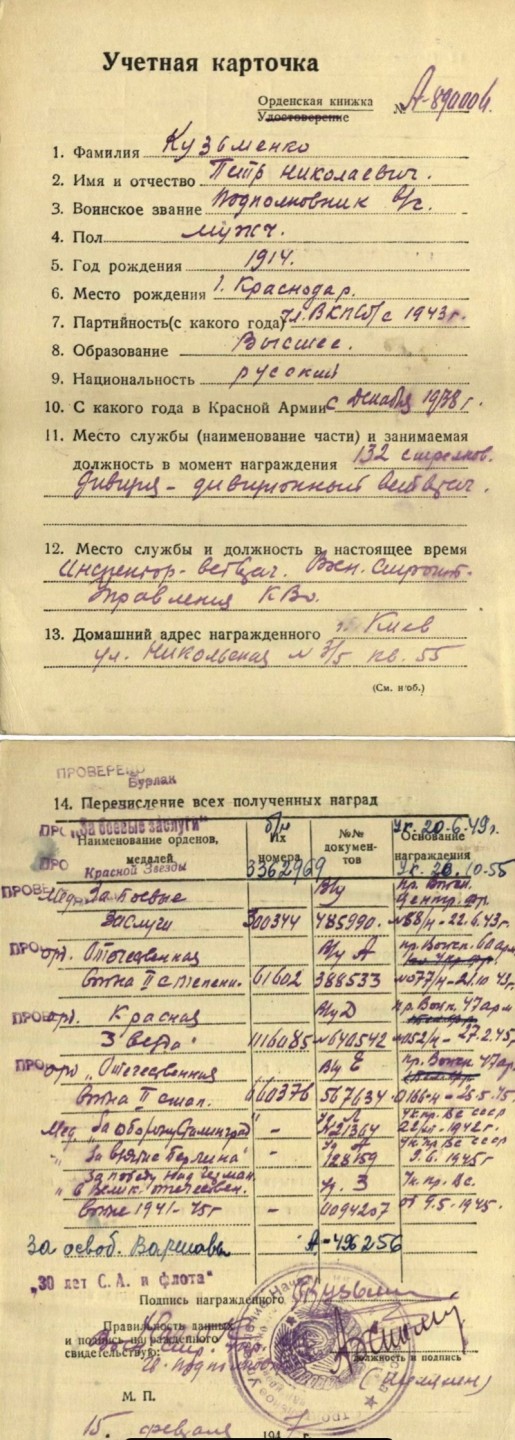 Учетная карточка
Орденская книжка
Удостоверение
№ А-890006
1. Фамилия Кузьменко
2. Имя и отчество Петр Николаевич.
3. Воинское звание Подполковник в/с.
4. Пол мужч.
5. Год рождения 1914.
6. Место рождения г. Краснодар.
7. Партийность(с какого года) ВКП(б) с 1943 г.
8. Образование Высшее.
9. Национальность русский
10. С какого года в Красной Армии с Декабря 1938 г.
11. Место службы (наименование части) и занимаемая
должность в момент награждения 132 стрелков.
Дивизия - дивизионный ветврач.
12. Место службы и должность в настоящее время
Инспектор-ветврач. Воен. Строит.
Управления КВО.
13. Домашний адрес награжденного г. Киев
ул. Никольская № 3/5 кв. 55
(См. н/об.)
ПРОВЕРЕНО
Бурлак
14. Перечисление всех полученных наград
„За боевые заслуги" б/н Ук. 20-6.49г.
Наименование орденов, медалей Их номера №№ документов Основание награждения
Красной Звезды 3362969 Ук. 10-55
Мед. За Боевые В/у пр. Войск. Центр. фр.
Заслуги 300344 485990. №88/н - 22.6.43г.
орд. Отечественная В/у А пр. Войск. 60 арм
Война II степени. 61602 388533 №077/н - 21.10 43г.
орд. Красная В/у Д пр. Войск. 47 арм
Звезда" 1116085 №640542 №052/н - 27.2.45г
орд „Отечественная В/у Е пр. Войск. 47 ар.
Война II степ. 567634 0166-н - 25.5.45г
Мед. „За оборону Сталинграда" - 21364 Ук пр. Вс СССР 1942г.
„За взятие Берлина" - 128159 Ук пр. Вс СССР 9.6.1945г
„За победу над Герман.
в Велик. отечествен. у. З Ук. пр. Вс.
Войне 1941-45г - 0094207 от 9.5.1945.
За освоб. Варшавы А-496256
„30 лет С. А. и флота"
Подпись награжденного
Правильность данных
и подпись награжденного
свидетельствую:
Должность и подпись
(Шемякин)
М. П.
15 февраля 194 г.